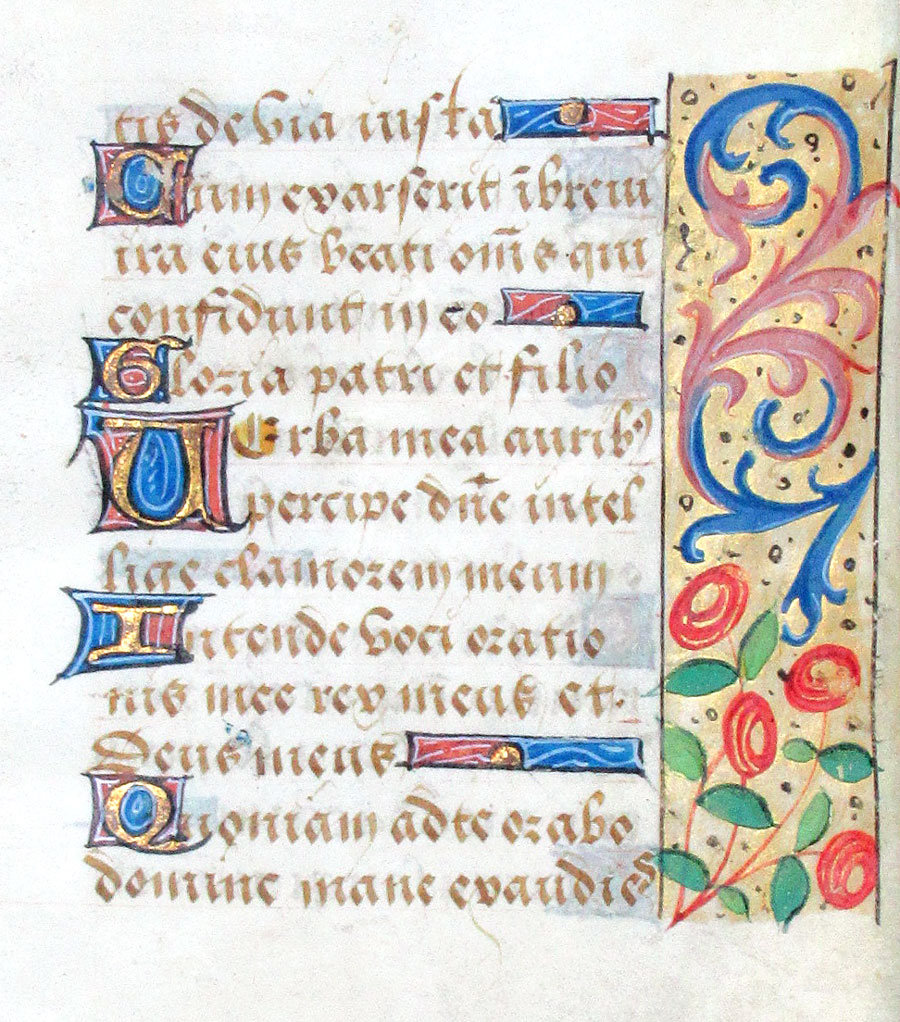 tis de via iusta
Cum exarserit ībreui
ira eius beati om̄s qui
confidunt in eo
Gloria patri et filio
UErba mea aurib⁹
percipe dn̄e intel
lige clamorem meum
Intende voci oratio
nis mee rex meus et
Deus meus
Quoniam ad te orabo
domine mane exaudies